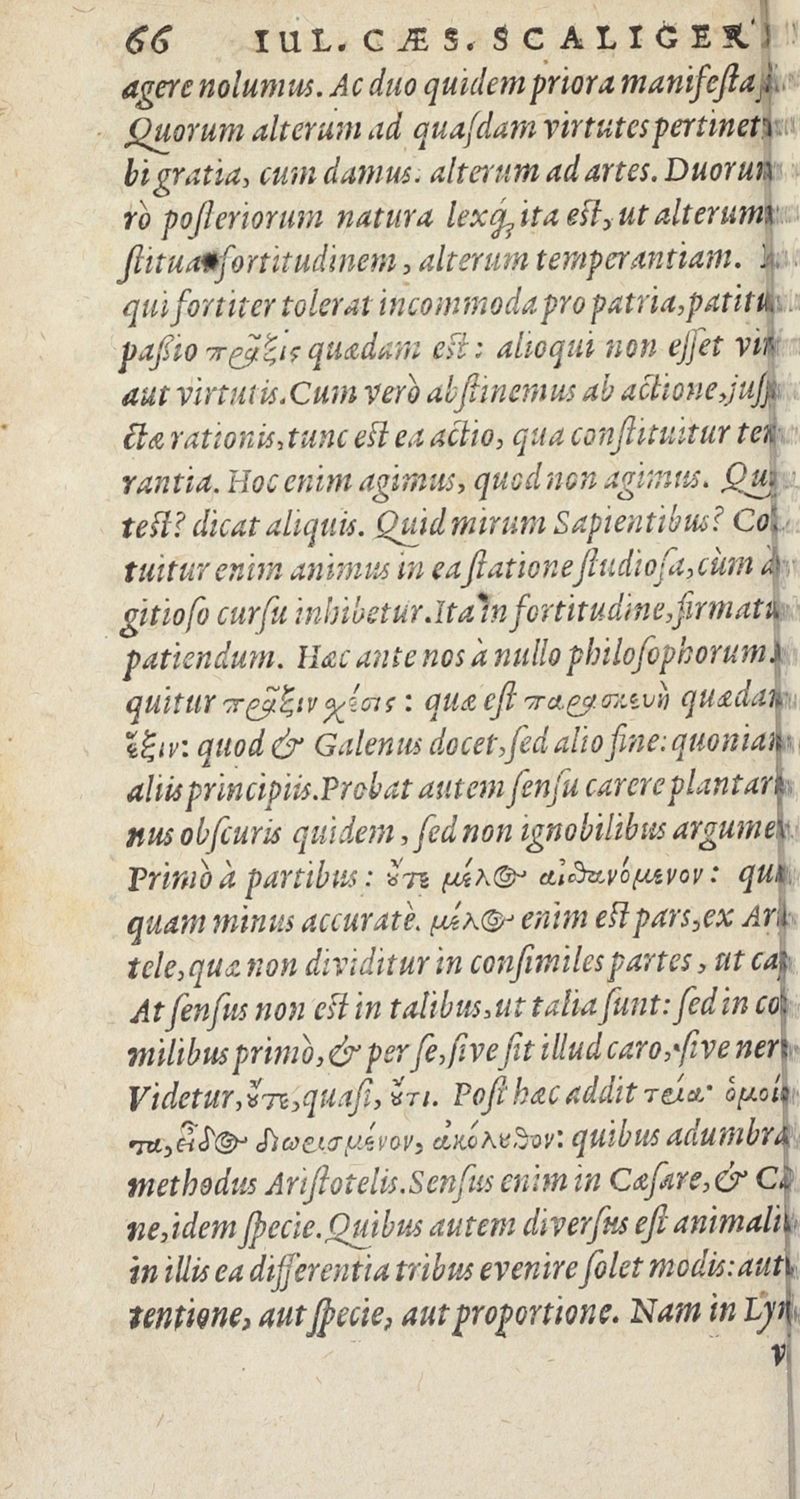 66 IUL. CÆS. SCALIGERI
agere nolumus. Ac duo quidem priora manifesta
Quorum alterum ad quasdam virtutes pertinet:
bi gratia, cum damus: alterum ad artes. Duorum
rò posteriorum natura lexq́; ita est, ut alterum
stituat fortitudinem, alterum temperantiam.
qui fortiter tolerat incommoda pro patria, patitu
passio πρᾶξις quædam est: alioqui non esset vir
aut virtutis. Cum verò abstinemus ab actione, juss
ctæ rationis, tunc est ea actio, qua constituitur te
rantia. Hoc enim agimus, quod non agimus. Qu
test? dicat aliquis. Quid mirum Sapientibus? Co
tuitur enim animus in ea statione studiosa, cùm à
gitioso cursu inhibetur. Ita in fortitudine, firmatu
patiendum. Hæc ante nos à nullo philosophorum.
quitur πρᾶξιν χέσις: quæ est παρασκευὴ quædam
ἕξιν: quod & Galenus docet, sed alio fine: quoniam
aliis principiis. Probat autem sensu carere plantar
nus obscuris quidem, sed non ignobilibus argume
Primò à partibus: ȣ̓́τε μέλος αἰσθανόμενον: qu
quam minus accuratè. μέλος enim est pars, ex Ar
tele, quæ non dividitur in consimiles partes, ut ca
At sensus non est in talibus, ut talia sunt: sed in co
milibus primò, & per se, sive sit illud caro, sive ner
Videtur, ȣ̓́τε, quasi, ȣ̓́τι. Post hæc addit τρία· ὁμοί
τα, εἶδος διωρισμένον, ἀκόλȣθον: quibus adumbra
methodus Aristotelis. Sensus enim in Cæsare, & Ca
ne, idem specie. Quibus autem diversus est animali
in illis ea differentia tribus evenire solet modis: aut
tentione, aut specie, aut proportione. Nam in Lyn
v